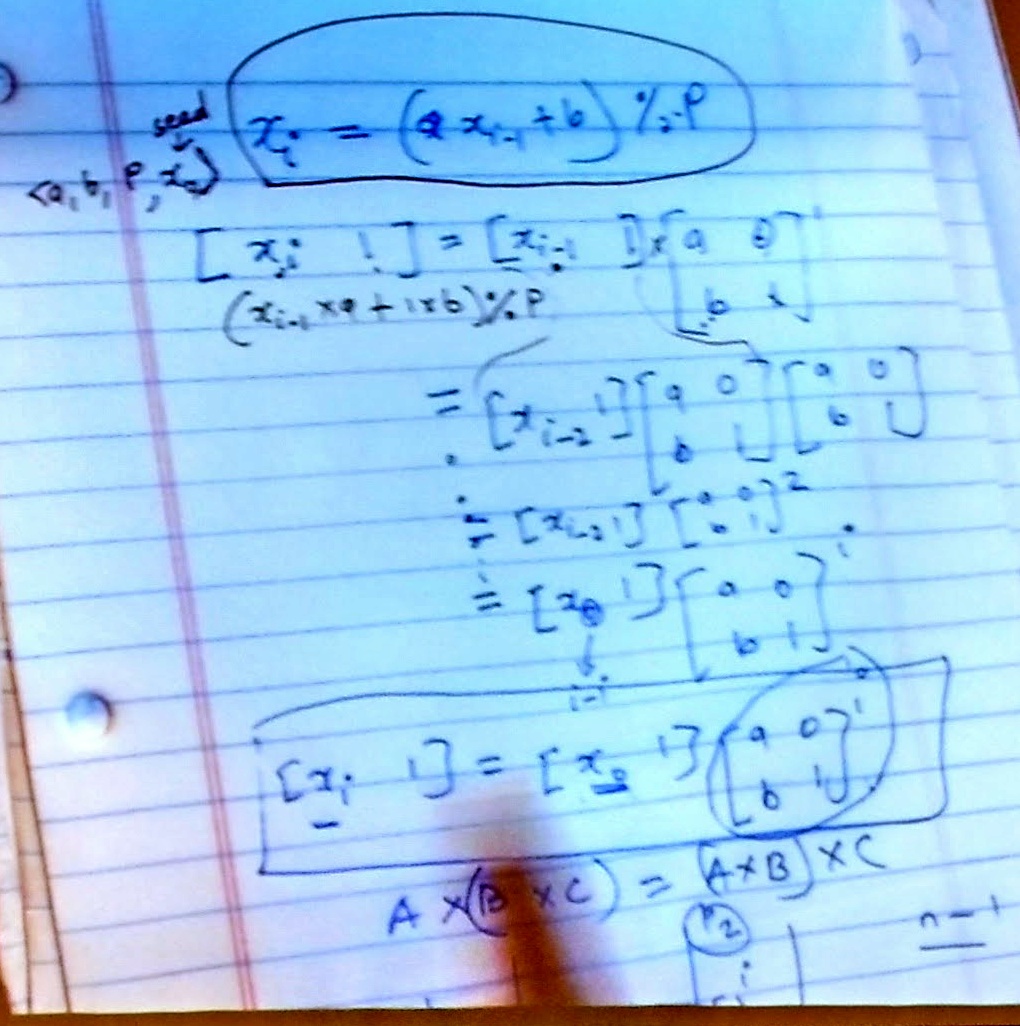 seed
<a, b, P, x₀>
xᵢ = (a xᵢ₋₁ + b) % P
[ xᵢ 1 ] = [ xᵢ₋₁ 1 ] x [ a 0
b 1 ]
(xᵢ₋₁ x a + 1 x b) % P
= [ xᵢ₋₂ 1 ] [ a 0
b 1 ] [ a 0
b 1 ]
= [ xᵢ₋₂ 1 ] [ a 0
b 1 ]²
= [ x₀ 1 ] [ a 0
b 1 ]ⁱ
↓
i-i
[ xᵢ 1 ] = [ x₀ 1 ] [ a 0
b 1 ]ⁱ
A x (B x C) = (A x B) x C
n-1